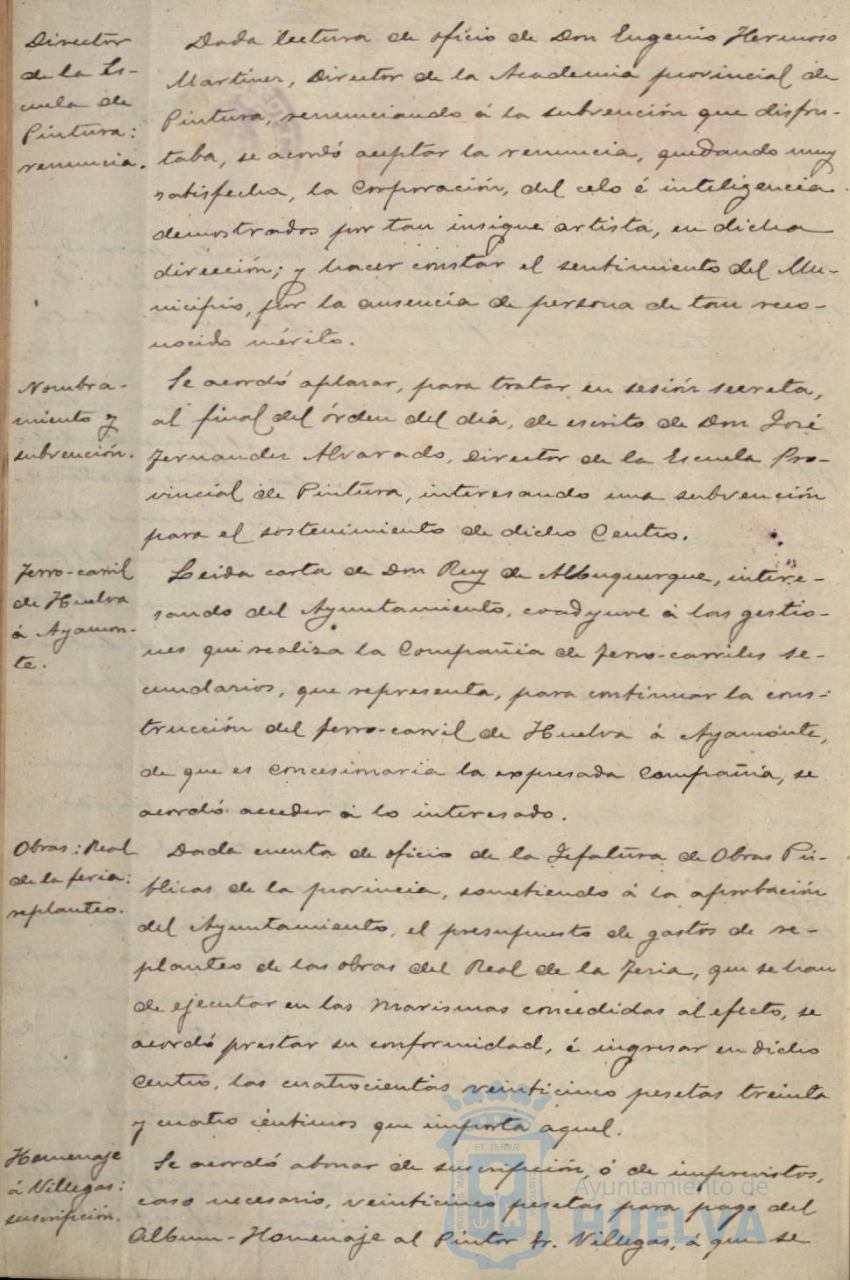 Director
de la Es-
cuela de
Pintura:
renuncia.
Dada lectura de oficio de Don Eugenio Hermoso
Martinez, Director de la Academia provincial de
Pintura, renunciando á la subvención que disfru-
taba, se acordó aceptar la renuncia, quedando muy
satisfecha, la Corporación, del celo é inteligencia
demostrados por tan insigne artista, en dicha
dirección; y hacer constar el sentimiento del Mu-
nicipio, por la ausencia de persona de tan reco-
nocido mérito.
Nombra-
miento y
subvención.
Se acordó aplazar, para tratar en sesión secreta,
al final del órden del día, de escrito de Don José
Fernandez Alvarado, Director de la Escuela Pro-
vincial de Pintura, interesando una subvención
para el sostenimiento de dicho Centro.
Ferro-carril
de Huelva
á Ayamon-
te.
Leida carta de Don Ruy de Albuquerque, intere-
sando del Ayuntamiento, coadyuve á las gestio-
nes que realiza la Compañia de ferro-carriles se-
cundarios, que representa, para continuar la cons-
trucción del ferro-carril de Huelva á Ayamonte,
de que es concesionaria la expresada Compañia, se
acordó acceder á lo interesado.
Obras: Real
de la feria:
replanteo.
Dada cuenta de oficio de la Jefatura de Obras Pú-
blicas de la provincia, sometiendo á la aprobación
del Ayuntamiento, el presupuesto de gastos de re-
planteo de las obras del Real de la Feria, que se han
de ejecutar en las marismas concedidas al efecto, se
acordó prestar su conformidad, é ingresar en dicho
Centro, las cuatrocientas veinticinco pesetas treinta
y cuatro céntimos que importa aquel.
Homenaje
á Villegas:
suscripción.
Se acordó abonar de suscripción, ó de imprevistos,
caso necesario, veinticinco pesetas para pago del
Album-Homenaje al Pintor Sr. Villegas, á que se
Ayuntamiento de
HUELVA